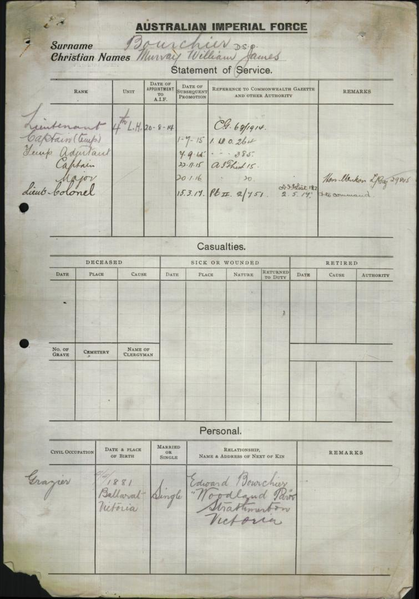 AUSTRALIAN IMPERIAL FORCE
Surname Bourchier DSO
Christian Names Murray William James
Statement of Service.
RANK UNIT DATE OF APPOINTMENT TO A.I.F. DATE OF SUBSEQUENT PROMOTION REFERENCE TO COMMONWEALTH GAZETTE AND OTHER AUTHORITY REMARKS
Lieutenant 4th L.H. 20-8-14
Captain (Temp) 1-7-15
Temp Adjutant
Captain
Major 20.1.16
Lieut-Colonel 15.3.17 2.5.17
Casualties.
DECEASED SICK OR WOUNDED RETIRED
DATE PLACE CAUSE DATE PLACE NATURE RETURNED TO DUTY DATE CAUSE AUTHORITY
NO. OF GRAVE CEMETERY NAME OF CLERGYMAN
Personal.
CIVIL OCCUPATION DATE & PLACE OF BIRTH MARRIED OR SINGLE RELATIONSHIP, NAME & ADDRESS OF NEXT OF KIN REMARKS
Grazier 1881 Ballarat Victoria Single Edward Bourchier
Strathmerton
Victoria